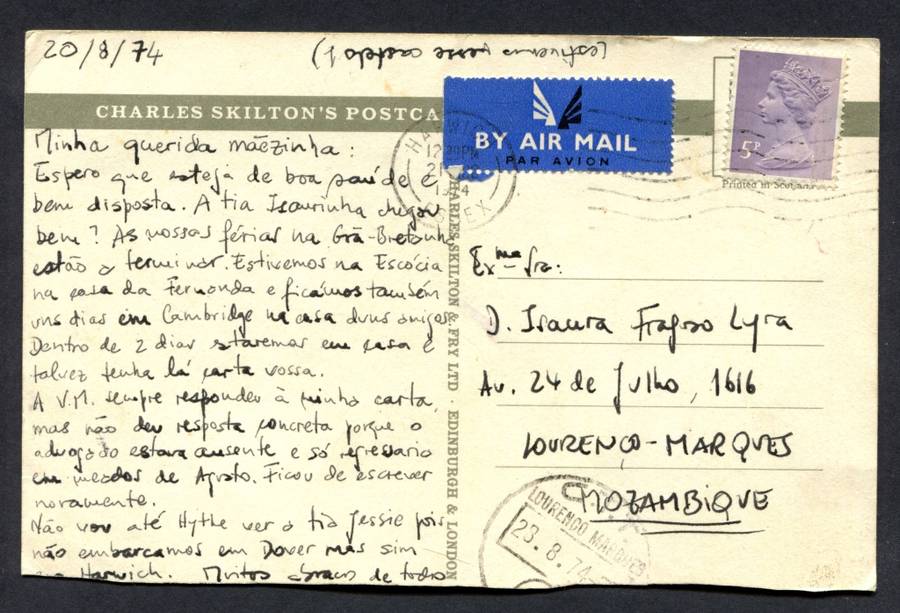 20/8/74
(estivemos nesse castelo!)
CHARLES SKILTON'S POSTCA
BY AIR MAIL
PAR AVION
5P
Printed in Scotland
HARWICH
12 30PM
21
1974
ESSEX
Minha querida mãezinha:
Espero que esteja de boa saúde e
bem disposta. A tia Isaurinha chegou
bem? As nossas férias na Grã-Bretanha
estão a terminar. Estivemos na Escócia
na casa da Fernanda e ficámos também
uns dias em Cambridge na casa duns amigos.
Dentro de 2 dias estaremos em casa e
talvez tenha lá carta vossa.
A V.M. sempre respondeu à minha carta,
mas não deu resposta concreta porque o
advogado estava ausente e só regressaria
em meados de Agosto. Ficou de escrever
novamente.
Não vou até Hythe ver a tia Jessie pois
não embarcamos em Dover mas sim
em Harwich. Muitos abraços de todos
CHARLES SKILTON & FRY LTD · EDINBURGH & LONDON
Exma Sra:
D. Isaura Fragoso Lyra
Av. 24 de Julho, 1616
LOURENÇO-MARQUES
MOZAMBIQUE
LOURENÇO MARQUES
23.8.74